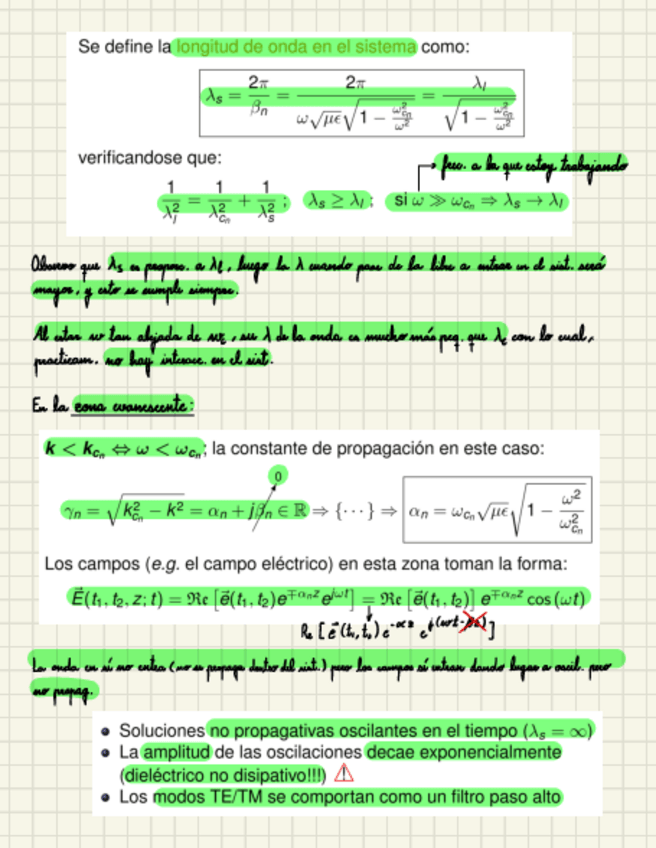 Se define la longitud de onda en el sistema como:
λ_s = 2π/β_n = 2π/(ω√(με)√(1 − ω²_{c_n}/ω²)) = λ_l/√(1 − ω²_{c_n}/ω²)
verificandose que:
frec. a la que estoy trabajando
1/λ_l² = 1/λ²_{c_n} + 1/λ_s²; λ_s ≥ λ_l; si ω ≫ ω_{c_n} ⇒ λ_s → λ_l
Observo que λ_s es propor. a λ_l, luego la λ cuando pasa de la libre a entrar en el sist. será
mayor, y esto se cumple siempre.
Al estar w tan alejada de w_c, su λ de la onda es mucho más peq. que λ_c con lo cual,
practicam. no hay interacc. en el sist.
En la zona evanescente:
k < k_{c_n} ⇔ ω < ω_{c_n}; la constante de propagación en este caso:
0
γ_n = √(k²_{c_n} − k²) = α_n + jβ_n ∈ ℝ ⇒ {···} ⇒ α_n = ω_{c_n}√(με)√(1 − ω²/ω²_{c_n})
Los campos (e.g. el campo eléctrico) en esta zona toman la forma:
E⃗(t₁, t₂, z; t) = ℜe [e⃗(t₁, t₂)e^{∓α_n z}e^{jωt}] = ℜe [e⃗(t₁, t₂)] e^{∓α_n z} cos (ωt)
Re [e⃗(t₁,t₂) e^{-αz} e^{j(ωt-βz)}]
La onda en sí no entra (no se propaga dentro del sist.) pero los campos sí entran dando lugar a oscil. pero
no propag.
• Soluciones no propagativas oscilantes en el tiempo (λ_s = ∞)
• La amplitud de las oscilaciones decae exponencialmente
(dieléctrico no disipativo!!!) ⚠
• Los modos TE/TM se comportan como un filtro paso alto